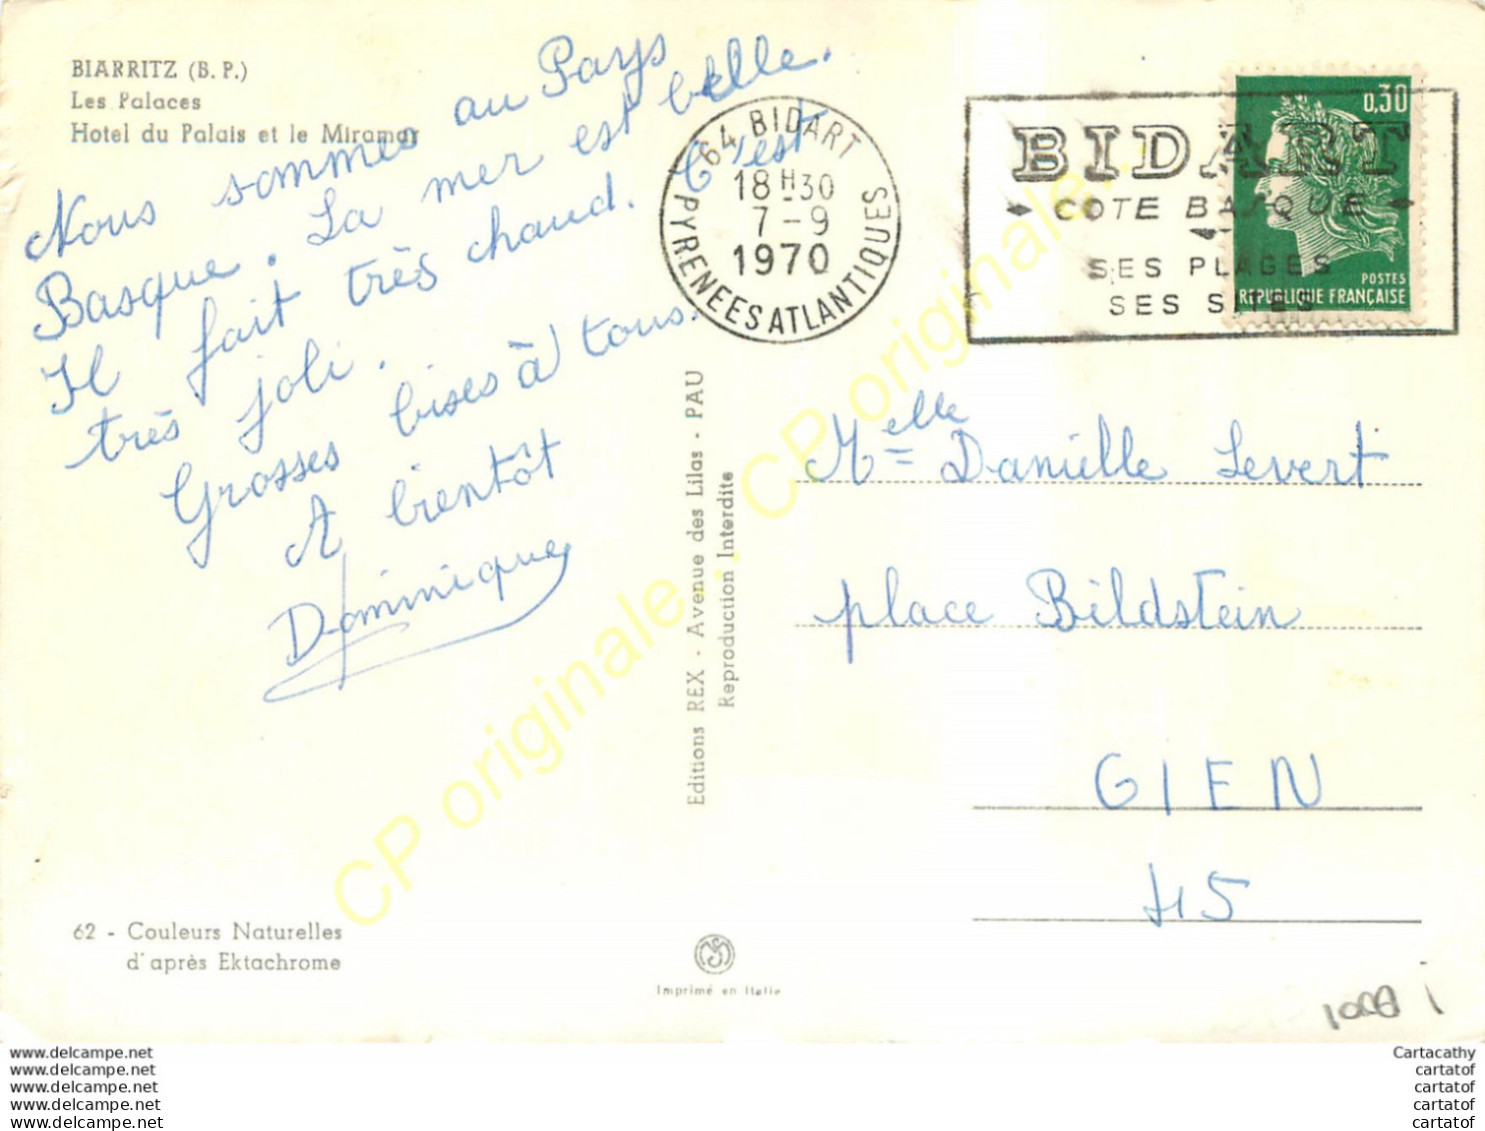 BIARRITZ (B. P.)
Les Palaces
Hotel du Palais et le Miramar
Nous sommes au Pays
Basque. La mer est belle.
Il fait très chaud. C'est
très joli.
Grosses bises à tous.
A bientôt
Dominique
62 - Couleurs Naturelles
d'après Ektachrome
Editions REX - Avenue des Lilas - PAU
Reproduction Interdite
Imprimé en Italie
64 BIDART
18 H 30
7 - 9
1970
PYRENEES ATLANTIQUES
BIDART
COTE BASQUE
SES PLAGES
SES SITES
0,30
POSTES
REPUBLIQUE FRANÇAISE
Melle Danielle Levert
place Bildstein
GIEN
45
CP originale...
CP originale...
www.delcampe.net
www.delcampe.net
www.delcampe.net
www.delcampe.net
www.delcampe.net
Cartacathy
cartatof
cartatof
cartatof
cartatof